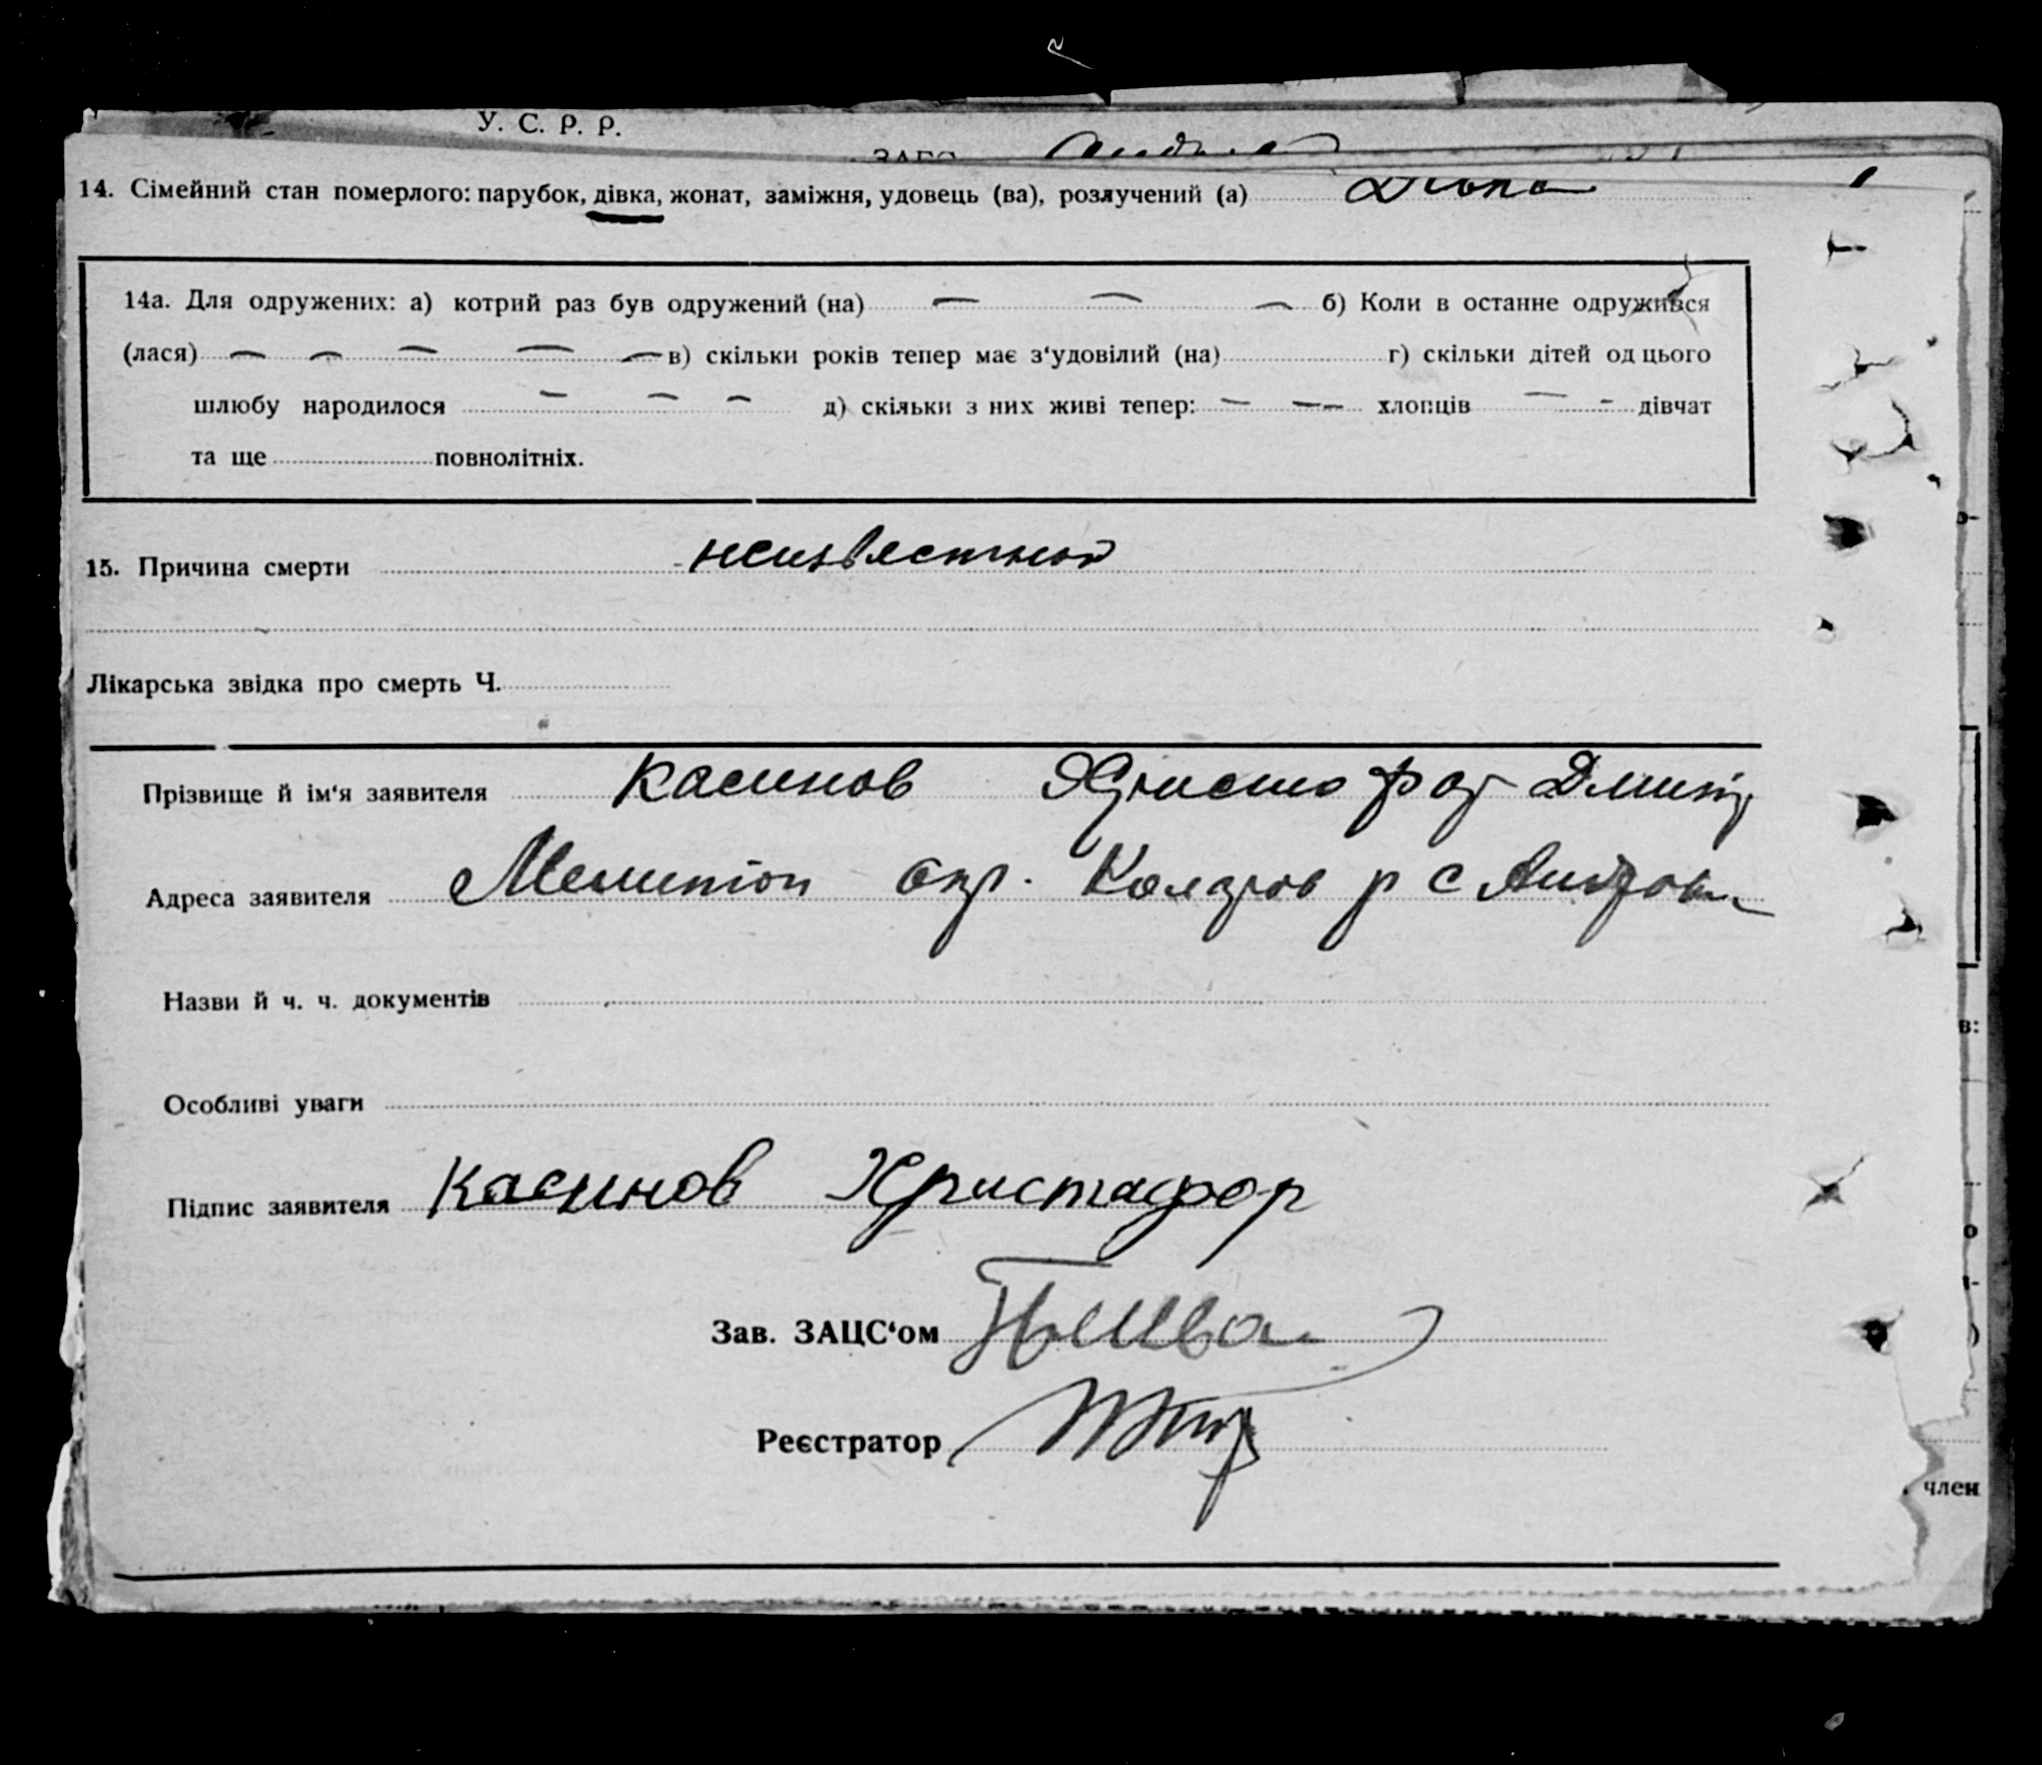 У. С. Р. Р.
14. Сімейний стан померлого: парубок, дівка, жонат, заміжня, удовець (ва), розлучений (а)
14а. Для одружених: а) котрий раз був одружений (на) — — — б) Коли в останне одружився
(лася) — — — — — в) скільки років тепер має з‘удовілий (на) г) скільки дітей од цього
шлюбу народилося — — — д) скільки з них живі тепер: — — хлопців — - дівчат
та ще повнолітніх.
15. Причина смерти
Лікарська звідка про смерть Ч.
Прізвище й ім‘я заявителя Касинов Христофор Дмитр
Адреса заявителя Мелитоп окр. р с
Назви й ч. ч. документів
Особливі уваги
Підпис заявителя Касинов Христафор
Зав. ЗАЦС‘ом
Реєстратор
член